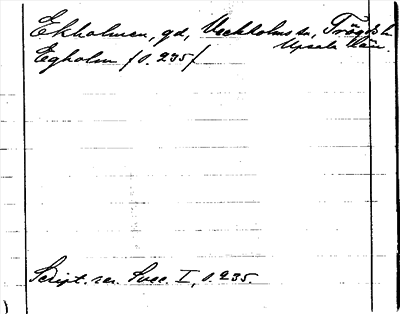 Ekholmen, gd, Veckholms sn, Trögds h.
Upsala län.
Egholm /s. 235/
Script. rer. Svec. I, s. 235.